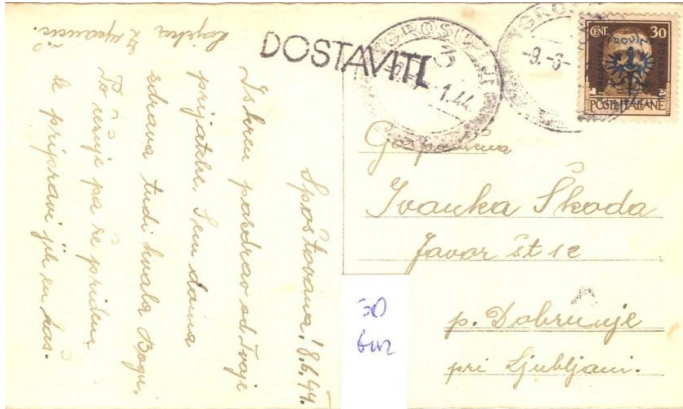 DOSTAVITI
1.44
-9.-6-
CENT. 30
PROVIN
POSTE ITALIANE
Gospodična
Ivanka Škoda
Javor št 12
p. Dobrunje
pri Ljubljani.
Spoštovana! 8.6.44.
Iskren pozdrav od Tvoje
prijatlce. Sem doma
zdrava tudi hvala Bogu.
To češnje pa že pridem,
le pripravi jih en koš.
Lojzka